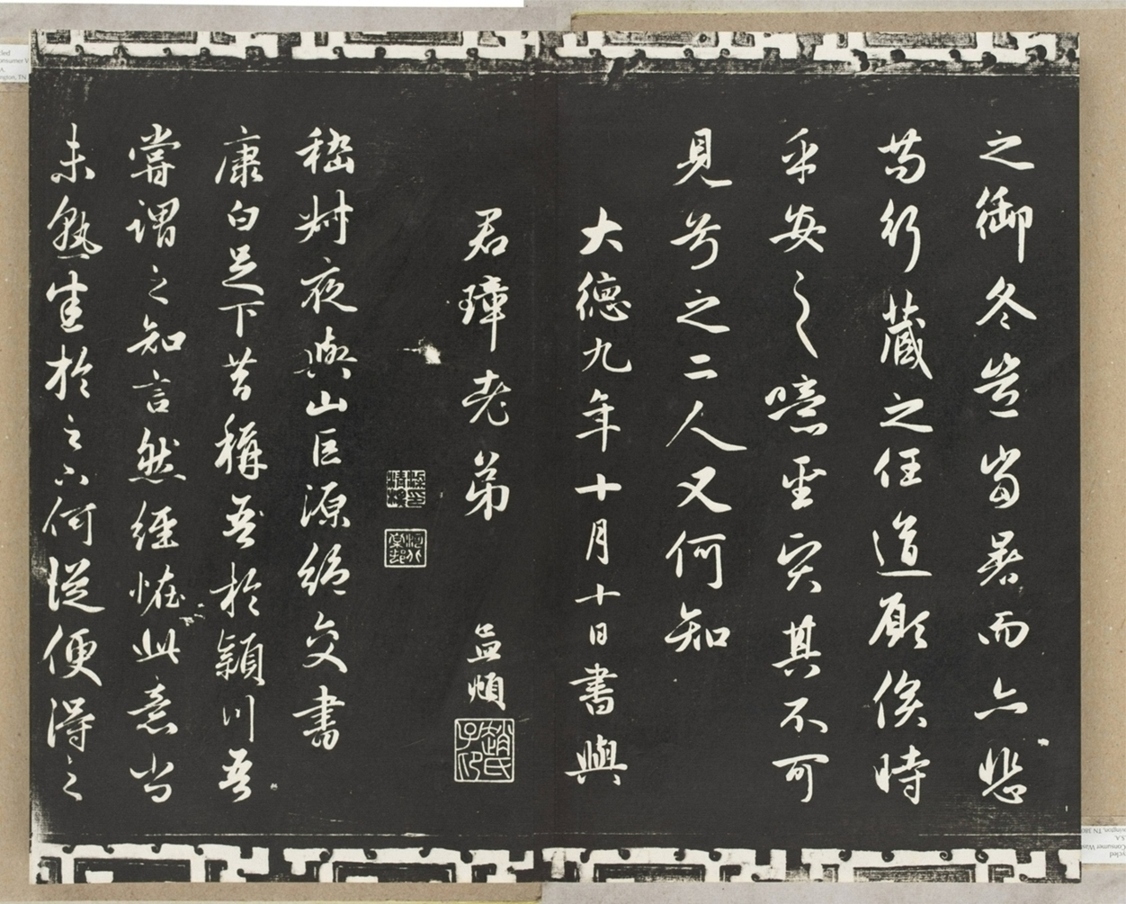 之御冬豈當暑而亦悲
苟行藏之任道願俟時
乎安之噫聖賢其不可
見兮之二人又何知
大德九年十月十日書與
君璋老弟
孟頫
趙氏子昂
嵇叔夜與山巨源絕交書
康白足下昔稱吾於潁川吾
嘗謂之知言然經怪此意尚
未熟悉於足下何從便得之